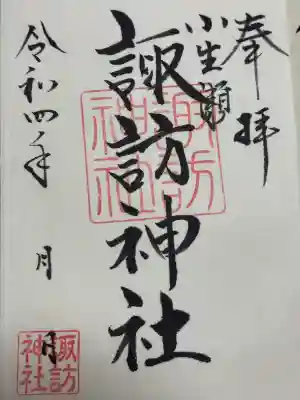 奉拝
小生瀬
諏訪神社
諏訪
神社
令和四年 月 日
諏訪
神社